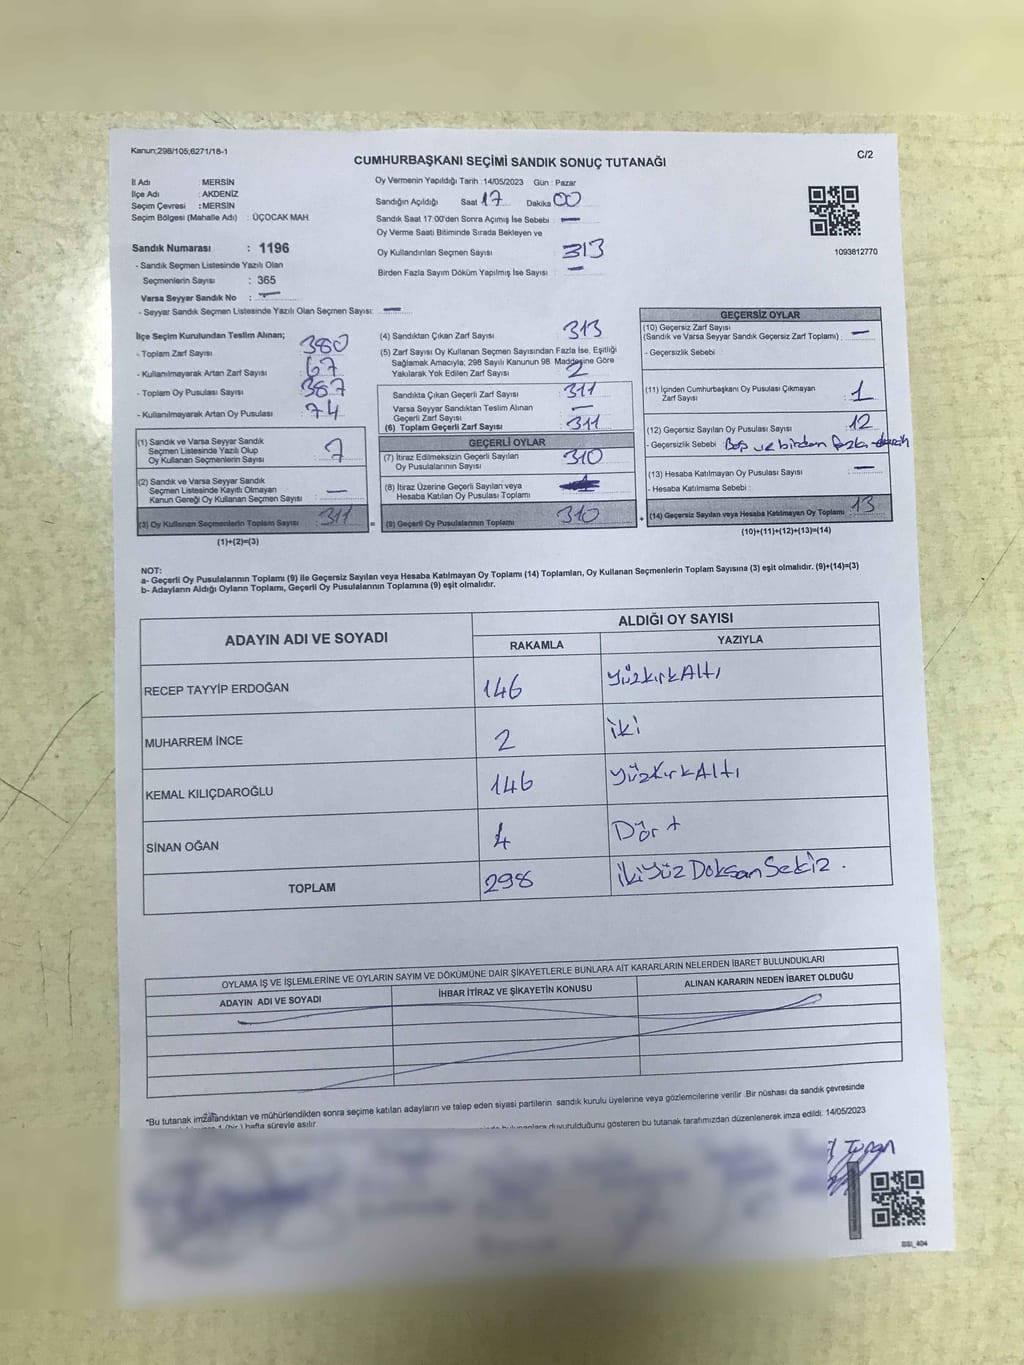 Kanun;298/105,6271/18-1
C/2
CUMHURBAŞKANI SEÇİMİ SANDIK SONUÇ TUTANAĞI
İl Adı : MERSİN
İlçe Adı : AKDENİZ
Seçim Çevresi : MERSİN
Seçim Bölgesi (Mahalle Adı) : ÜÇOCAK MAH.
Sandık Numarası : 1196
- Sandık Seçmen Listesinde Yazılı Olan
Seçmenlerin Sayısı : 365
Varsa Seyyar Sandık No : —
- Seyyar Sandık Seçmen Listesinde Yazılı Olan Seçmen Sayısı: —
Oy Vermenin Yapıldığı Tarih :14/05/2023 Gün : Pazar
Sandığın Açıldığı Saat 17 Dakika 00
Sandık Saat 17:00'den Sonra Açımış İse Sebebi : —
Oy Verme Saati Bitiminde Sırada Bekleyen ve
Oy Kullandırılan Seçmen Sayısı : 313
Birden Fazla Sayım Döküm Yapılmış İse Sayısı : —
1093812770
İlçe Seçim Kurulundan Teslim Alınan;
- Toplam Zarf Sayısı : 380
- Kullanılmayarak Artan Zarf Sayısı : 67
- Toplam Oy Pusulası Sayısı : 387
- Kullanılmayarak Artan Oy Pusulası : 74
(1) Sandık ve Varsa Seyyar Sandık
Seçmen Listesinde Yazılı Olup
Oy Kullanan Seçmenlerin Sayısı : 7
(2) Sandık ve Varsa Seyyar Sandık
Seçmen Listesinde Kayıtlı Olmayan
Kanun Gereği Oy Kullanan Seçmen Sayısı : —
(3) Oy Kullanan Seçmenlerin Toplam Sayısı : 311
(1)+(2)=(3)
(4) Sandıktan Çıkan Zarf Sayısı : 313
(5) Zarf Sayısı Oy Kullanan Seçmen Sayısından Fazla İse, Eşitliği
Sağlamak Amacıyla; 298 Sayılı Kanunun 98. Maddesine Göre
Yakılarak Yok Edilen Zarf Sayısı : 2
Sandıkta Çıkan Geçerli Zarf Sayısı : 311
Varsa Seyyar Sandıktan Teslim Alınan
Geçerli Zarf Sayısı : —
(6) Toplam Geçerli Zarf Sayısı : 311
GEÇERLİ OYLAR
(7) İtiraz Edilmeksizin Geçerli Sayılan
Oy Pusulalarının Sayısı : 310
(8) İtiraz Üzerine Geçerli Sayılan veya
Hesaba Katılan Oy Pusulası Toplamı
= (9) Geçerli Oy Pusulalarının Toplamı : 310
GEÇERSİZ OYLAR
(10) Geçersiz Zarf Sayısı
(Sandık ve Varsa Seyyar Sandık Geçersiz Zarf Toplamı) : —
- Geçersizlik Sebebi :
(11) İçinden Cumhurbaşkanı Oy Pusulası Çıkmayan
Zarf Sayısı : 1
(12) Geçersiz Sayılan Oy Pusulası Sayısı : 12
- Geçersizlik Sebebi : Boş ve birden fazla
(13) Hesaba Katılmayan Oy Pusulası Sayısı : —
- Hesaba Katılmama Sebebi :
+ (14) Geçersiz Sayılan veya Hesaba Katılmayan Oy Toplamı : 13
(10)+(11)+(12)+(13)=(14)
NOT:
a- Geçerli Oy Pusulalarının Toplamı (9) ile Geçersiz Sayılan veya Hesaba Katılmayan Oy Toplamı (14) Toplamları, Oy Kullanan Seçmenlerin Toplam Sayısına (3) eşit olmalıdır. (9)+(14)=(3)
b- Adayların Aldığı Oyların Toplamı, Geçerli Oy Pusulalarının Toplamına (9) eşit olmalıdır.
ADAYIN ADI VE SOYADI
ALDIĞI OY SAYISI
RAKAMLA YAZIYLA
RECEP TAYYİP ERDOĞAN 146 YüzkırkAltı
MUHARREM İNCE 2 iki
KEMAL KILIÇDAROĞLU 146 YüzkırkAltı
SİNAN OĞAN 4 Dört
TOPLAM 298 ikiyüz Doksan Sekiz .
OYLAMA İŞ VE İŞLEMLERİNE VE OYLARIN SAYIM VE DÖKÜMÜNE DAİR ŞİKAYETLERLE BUNLARA AİT KARARLARIN NELERDEN İBARET BULUNDUKLARI
ADAYIN ADI VE SOYADI İHBAR İTİRAZ VE ŞİKAYETİN KONUSU ALINAN KARARIN NEDEN İBARET OLDUĞU
*Bu tutanak imzalandıktan ve mühürlendikten sonra seçime katılan adayların ve talep eden siyasi partilerin sandık kurulu üyelerine veya gözlemcilerine verilir .Bir nüshası da sandık çevresinde
1 (bir ) hafta süreyle asılır.
duyurulduğunu gösteren bu tutanak tarafımızdan düzenlenerek imza edildi. 14/05/2023